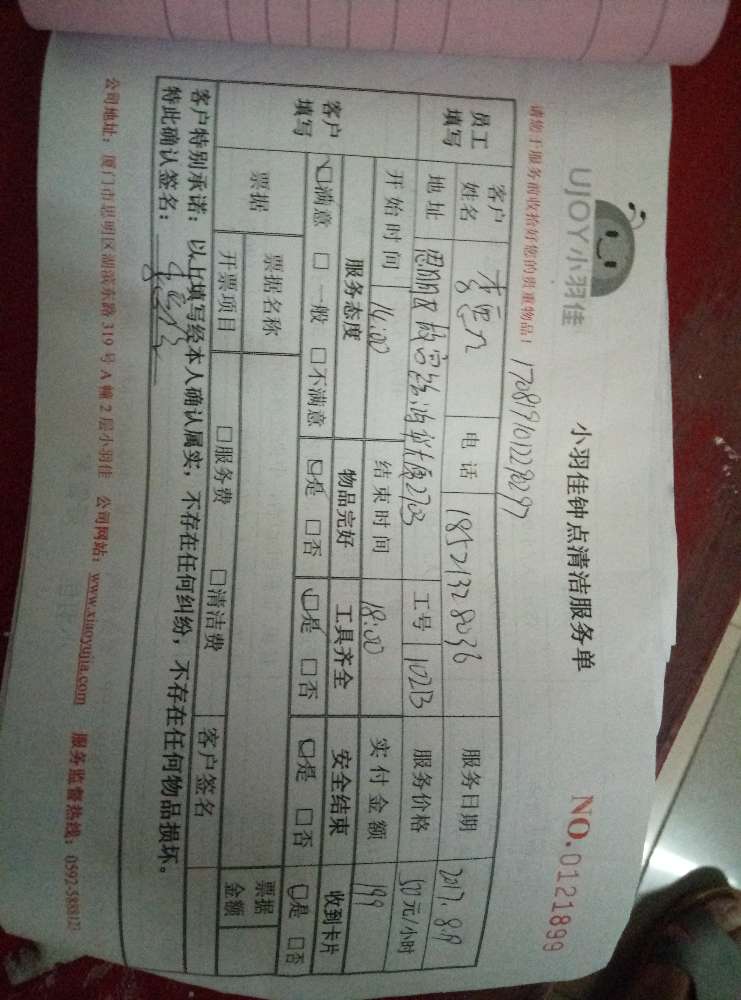 UJOY小羽佳
小羽佳钟点清洁服务单
NO.0121899
请您于服务前收拾好您的贵重物品！
员工填写 客户姓名 电话 18521328036 服务日期 2017.8.9
地址 思明区 大厦2703 工号 10213 服务价格 50元/小时
开始时间 14:00 结束时间 18:00 实付金额 199
客户填写 服务态度 物品完好 工具齐全 安全结束 收到卡片
☑满意 □一般 □不满意 ☑是 □否 ☑是 □否 ☑是 □否 ☑是 □否
票据 票据名称 票据金额
开票项目 □服务费 □清洁费 客户签名
客户特别承诺：以上填写经本人确认属实，不存在任何纠纷，不存在任何物品损坏。
特此确认签名：
公司地址：厦门市思明区湖滨东路 319 号 A 幢 2 层小羽佳 公司网站：www.xiaoyujia.com 服务监督热线：